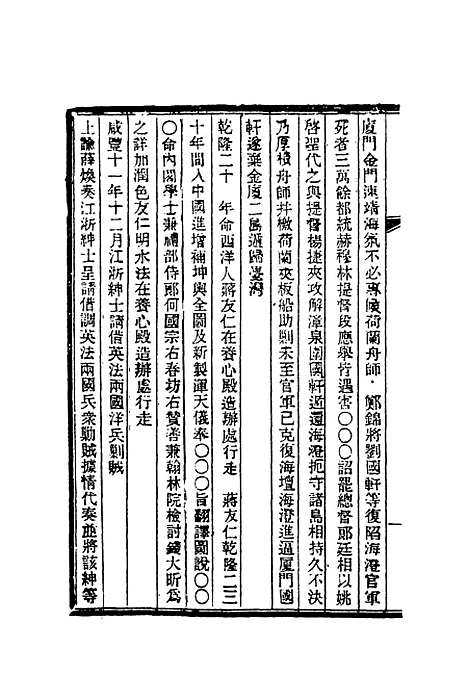 廈門金門肅靖海氛不必專候荷蘭舟師 鄭錦將劉國軒等復陷海澄官軍
死者三萬餘都統赫穆林提督段應舉皆遇害〇〇〇詔罷總督郎廷相以姚
啓聖代之與提督楊捷夾攻解漳泉圍國軒遁還海澄扼守諸島相持久不決
乃厚積舟師幷檄荷蘭夾板船助剿未至官軍已克復海壇海澄進逼廈門國
軒遂棄金廈二島遁歸臺灣
乾隆二十 年命西洋人蔣友仁在養心殿造辦處行走 蔣友仁乾隆二三
十年間入中國進增補坤輿全圖及新製渾天儀奉〇〇〇旨翻譯圖說〇〇
〇命內閣學士兼禮部侍郎何國宗右春坊右贊善兼翰林院檢討錢大昕爲
之詳加潤色友仁明水法在養心殿造辦處行走
咸豐十一年十二月江浙紳士請借英法兩國洋兵剿賊
上諭薛煥奏江浙紳士呈請借調英法兩國兵衆勦賊據情代奏並將該紳等
一